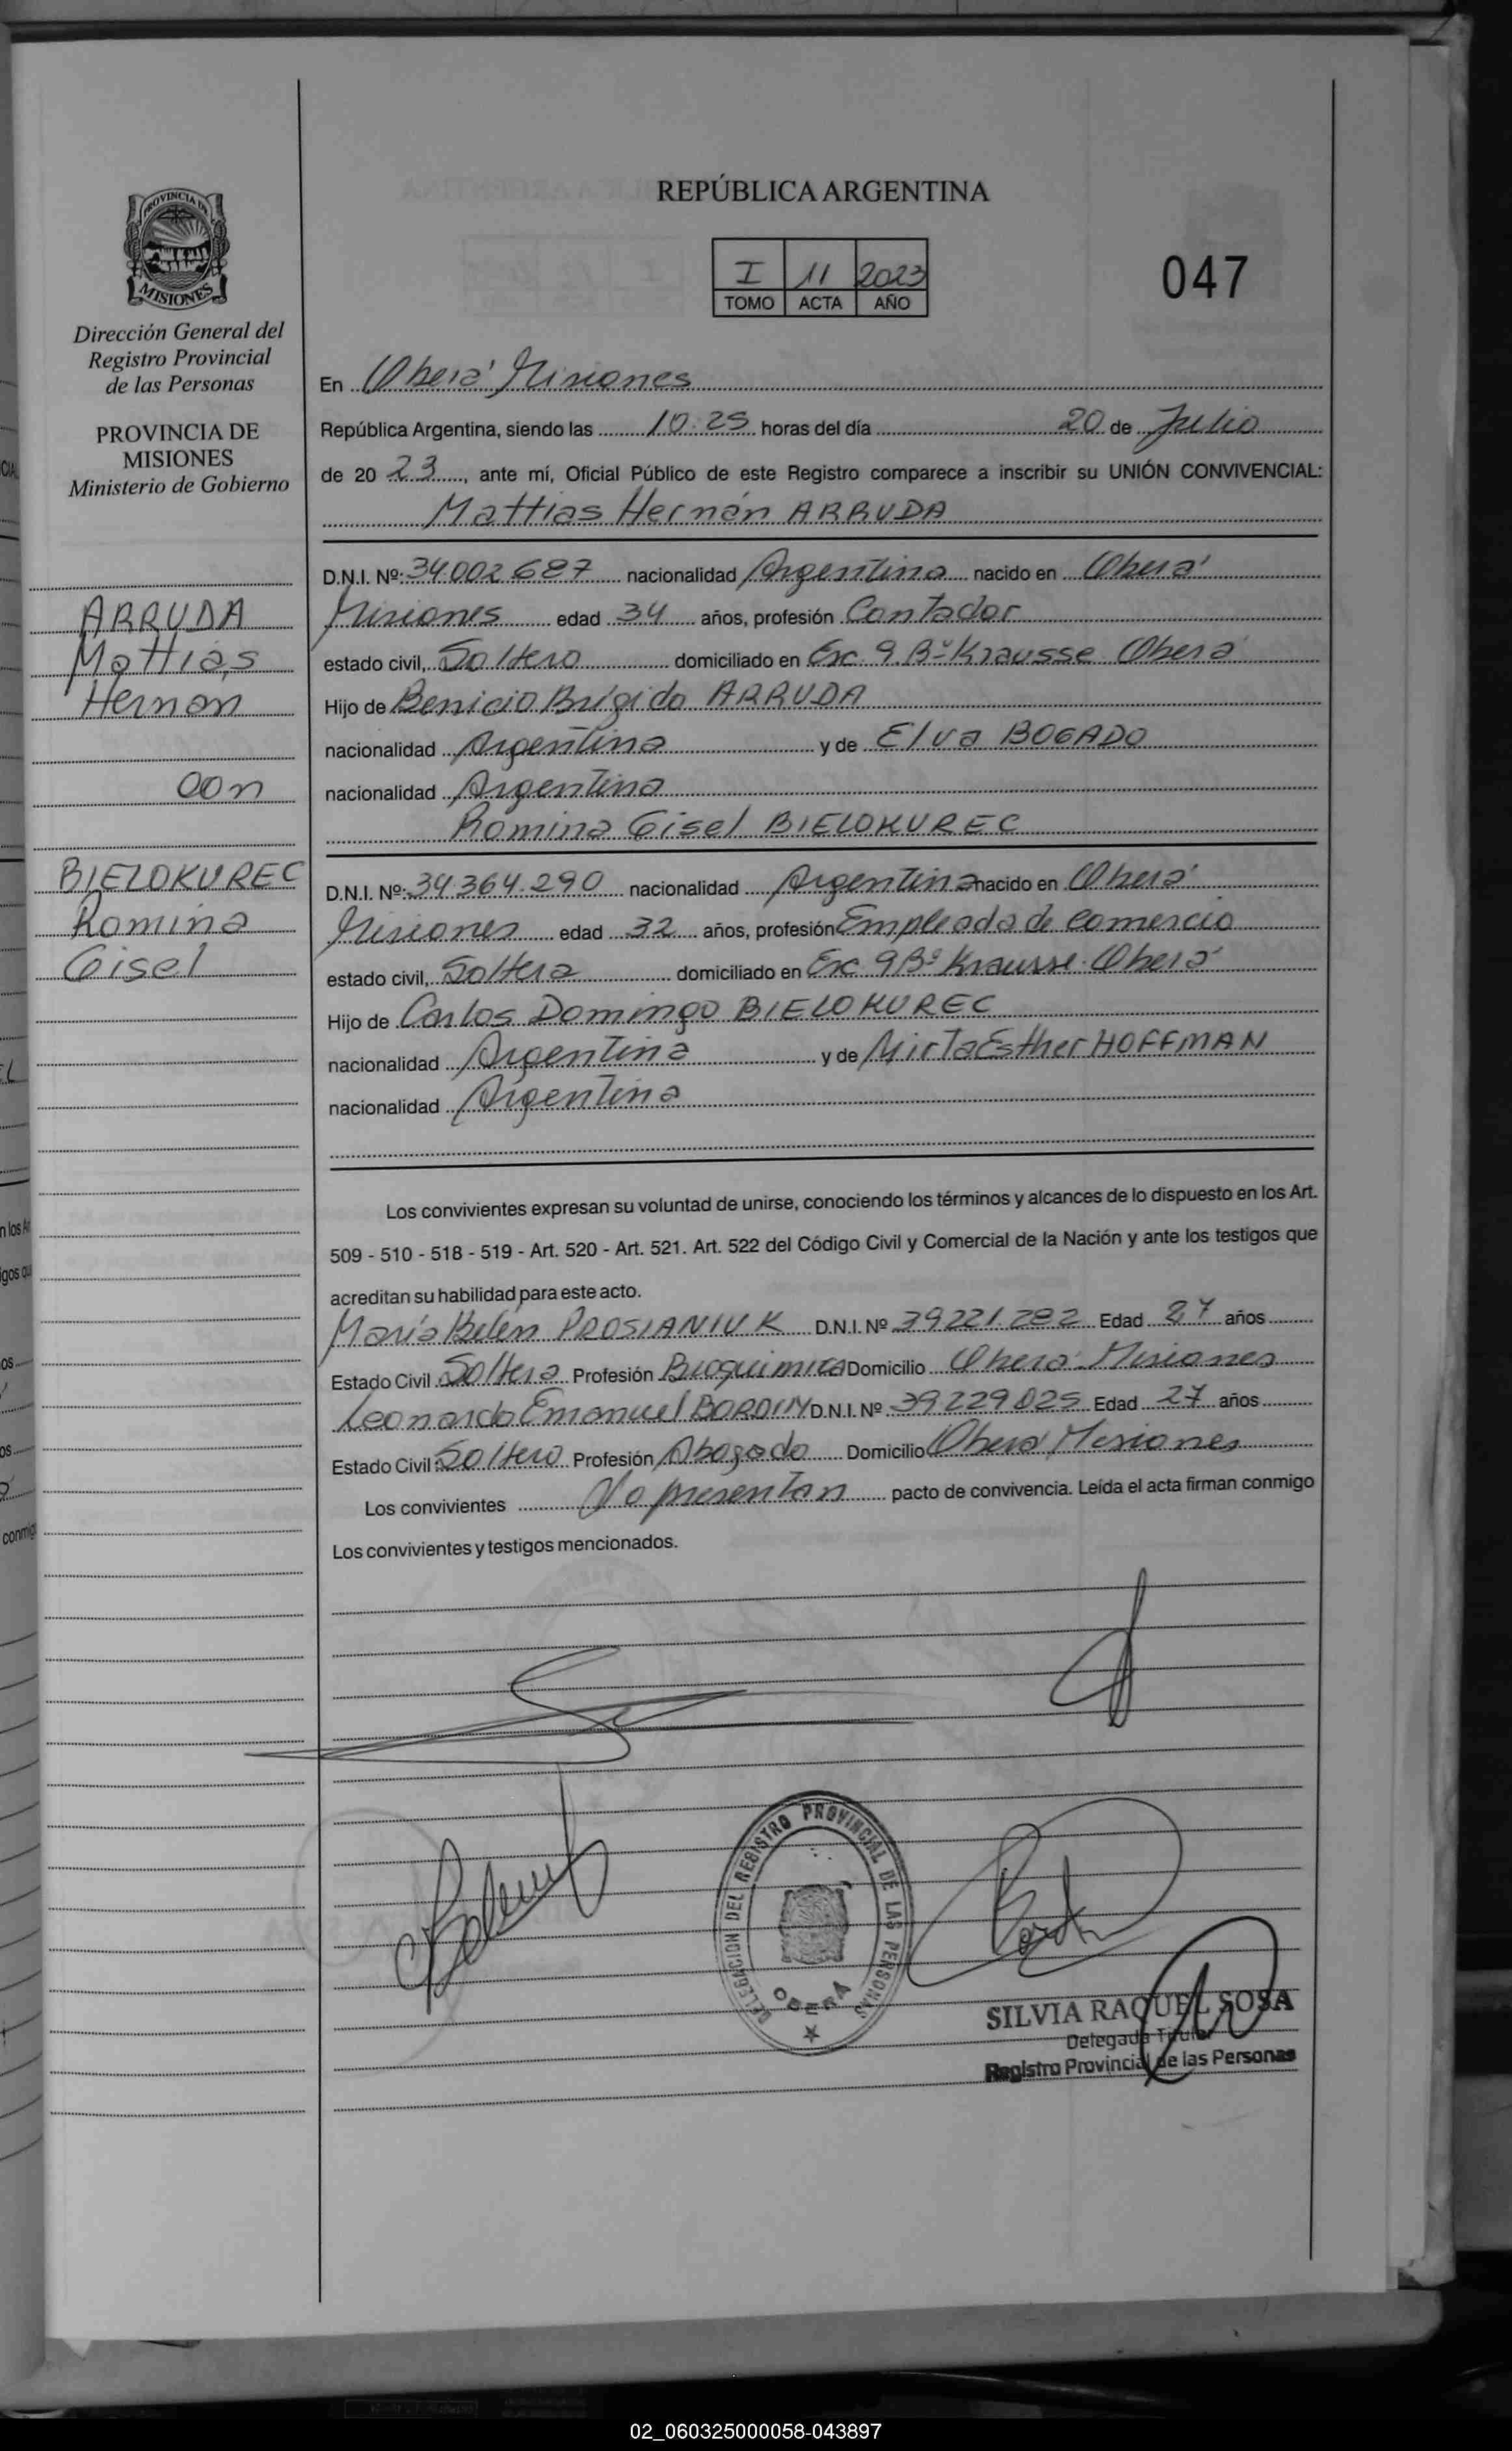 REPÚBLICA ARGENTINA
I 11 2023
TOMO ACTA AÑO
047
PROVINCIA DE
MISIONES
Dirección General del
Registro Provincial
de las Personas
PROVINCIA DE
MISIONES
Ministerio de Gobierno
ARRUDA
Mattias
Hernan
con
BIELOKUREC
Romina
Gisel
En Oberá Misiones
República Argentina, siendo las 10:25 horas del día 20 de Julio
de 20 23, ante mí, Oficial Público de este Registro comparece a inscribir su UNIÓN CONVIVENCIAL:
Mattias Hernán ARRUDA
D.N.I. Nº: 34.002.687 nacionalidad Argentina nacido en Oberá
Misiones edad 34 años, profesión Contador
estado civil, Soltero domiciliado en Esc. 9. Bº Krausse Oberá
Hijo de Benicio Brígido ARRUDA
nacionalidad Argentina y de Elva BOGADO
nacionalidad Argentina
Romina Gisel BIELOKUREC
D.N.I. Nº: 34.364.290 nacionalidad Argentina nacido en Oberá
Misiones edad 32 años, profesión Empleada de comercio
estado civil, Soltera domiciliado en Esc 9 Bº Krausse. Oberá
Hijo de Carlos Domingo BIELOKUREC
nacionalidad Argentina y de Mirta Esther HOFFMAN
nacionalidad Argentina
Los convivientes expresan su voluntad de unirse, conociendo los términos y alcances de lo dispuesto en los Art.
509 - 510 - 518 - 519 - Art. 520 - Art. 521. Art. 522 del Código Civil y Comercial de la Nación y ante los testigos que
acreditan su habilidad para este acto.
María Belén PROSIANIUK D.N.I. Nº 39.221.282 Edad 27 años
Estado Civil Soltera Profesión Bioquimica Domicilio Oberá Misiones
Leonardo Emanuel BORDIN D.N.I. Nº 39.229.025 Edad 27 años
Estado Civil: Soltero Profesión Abogado Domicilio Oberá Misiones
Los convivientes No presentan pacto de convivencia. Leída el acta firman conmigo
Los convivientes y testigos mencionados.
DELEGACION DEL REGISTRO PROVINCIAL DE LAS PERSONAS
OBERÁ
SILVIA RAQUEL SOSA
Delegada Titular
Registro Provincial de las Personas
02_060325000058-043897